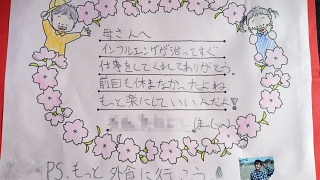 母さんへ
インフルエンザが治ってすぐ
仕事をしてくれてありがとう。
前回も休まなかったよね
もっと楽にしていいんだよ!
(まーしゃ〜)
P.S.もっと外食に行こう